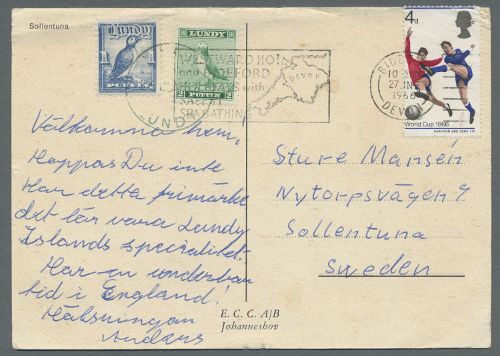 Sollentuna
LUNDY
1 1
PUFFIN
LUNDY
PUFFIN
WESTWARD HO!
and BIDEFORD
HOLIDAYS with
SAFE
SEA BATHING
DEVON
LUNDY
BIDEFORD
10
27
1966
DEVON
4d
World Cup 1966
HARRISON AND SONS LTD
Välkomna hem,
Hoppas Du inte
har detta frimärke
det lär vara Lundy
Islands specialitet.
Har en underbar
tid i England!
Hälsningan
Anders
Sture Mansén
Nytorpsvägen 9
Sollentuna
Sweden
E. C. C. A/B
Johanneshov